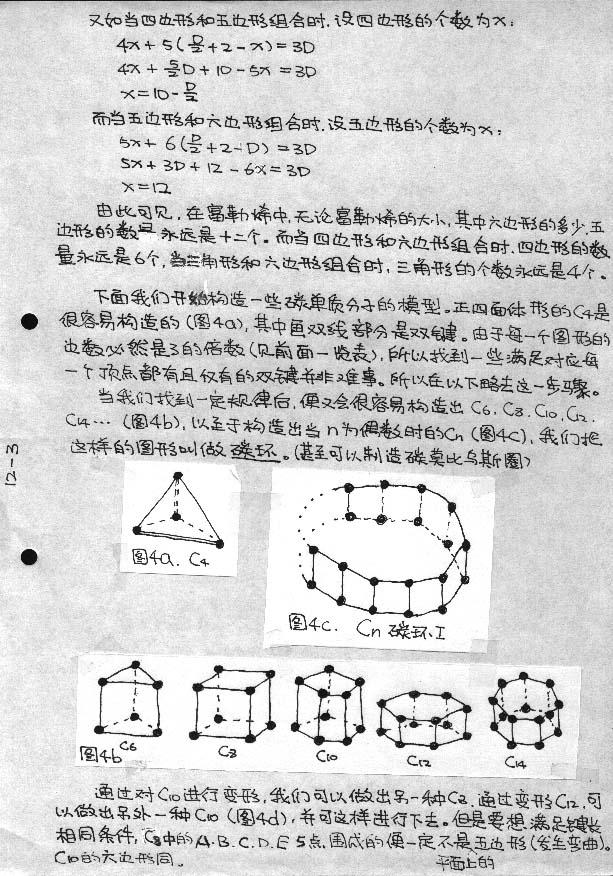 又如当四边形和五边形组合时,设四边形的个数为x:
4x+5(D/2+2-x)=3D
4x+5/2D+10-5x=3D
x=10-D/2
而当五边形和六边形组合时,设五边形的个数为x:
5x+6(D/2+2-D)=3D
5x+3D+12-6x=3D
x=12
由此可见,在富勒烯中,无论富勒烯的大小,其中六边形的多少,五
边形的数量永远是十二个。而当四边形和六边形组合时,四边形的数
量永远是6个,当三角形和六边形组合时,三角形的个数永远是4个。
下面我们开始构造一些碳单质分子的模型。正四面体形的C4是
很容易构造的(图4a),其中画双线部分是双键。由于每一个图形的
边数必然是3的倍数(见前面一览表),所以找到一些满足对应每
一个顶点都有且仅有的双键并非难事。所以在以下略去这一步骤。
当我们找到一定规律后,便又会很容易构造出C6,C8,C10,C12,
C14…(图4b),以至于构造出当n为偶数时的Cn(图4c),我们把
这样的图形叫做碳环。(甚至可以制造碳莫比乌斯圈)
12-3
图4a. C4
图4c. Cn 碳环I
C6
C8
C10
C12
C14
图4b
通过对C10进行变形,我们可以做出另一种C8.通过变形C12,可
以做出另外一种C10(图4d),并可这样进行下去。但是要想满足键长
相同条件,C8中的A.B.C.D.E 5点,围成的便一定不是五边形(发生弯曲)。
平面上的
C10的六边形同。